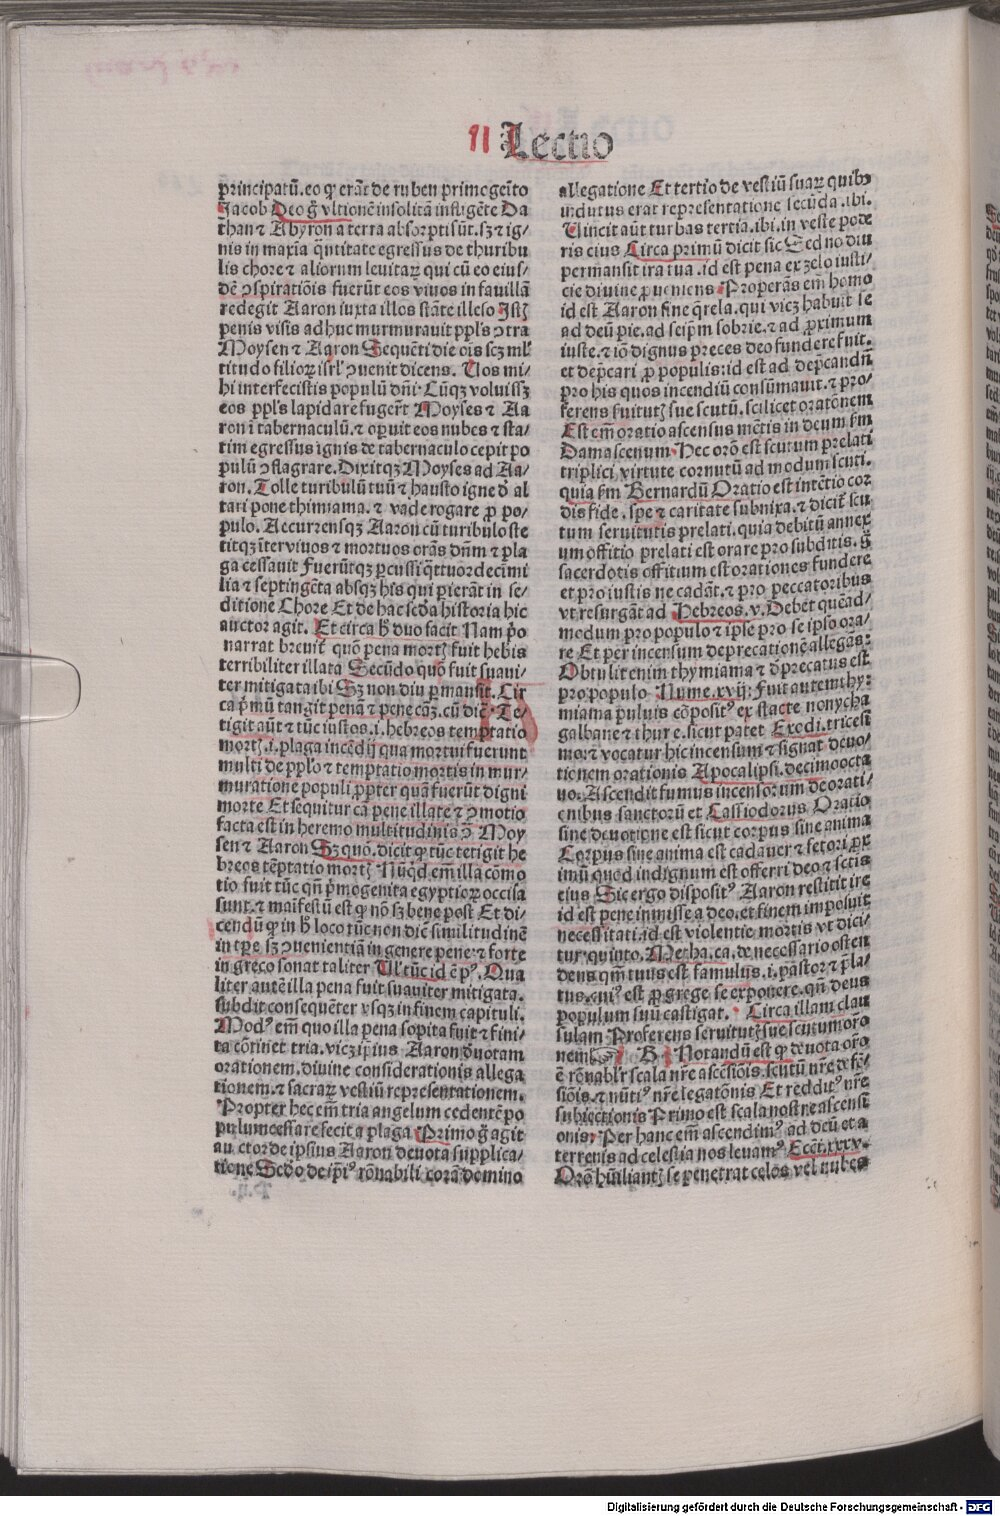 Lectio
principatū. eo qꝫ erāt de ruben primogēito
Jacob Deo ḡ vltionē insolitā infligēte Da
than ⁊ Abyron a terra absorpti sūt. sꝫ ⁊ ig/
nis in maxīa q̄ntitate egressus de thuribu
lis chore ⁊ alioꝝ leuitaꝝ qui cū eo eius/
dē ꝯspiratiōis fuerūt eos viuos in fauillā
redegit Aaron iuxta illos stāte illeso Istꝭ
penis visis adhuc murmurauit ppl's ꝯtra
Moysen ⁊ Aaron Sequēti die oīs scꝫ ml'
titudo filioꝝ isrl' ꝯuenit dicens. Uos mi/
hi interfecistis populū dn̄i. Cūqꝫ voluissꝫ
eos ppl's lapidare fugerūt Moyses ⁊ Aa
ron ī tabernaculū. ⁊ oꝑuit eos nubes ⁊ sta/
tim egressus ignis de tabernaculo cepit po
pulū ꝯflagrare. Dixitqꝫ Moyses ad Aa/
ron. Tolle turibulū tuū ⁊ hausto igne d̄ al
tari pone thimiama. ⁊ vade rogare ꝓ po/
pulo. Accurrensqꝫ Aaron cū turibulo ste
titqꝫ īter viuos ⁊ mortuos orās dn̄m ⁊ pla
ga cessauit Fuerūtqꝫ ꝑcussi q̄ttuordecī mi
lia ⁊ septingēta absqꝫ his qui ꝑierāt in se/
ditione Chore Et de hac scd̄a historia hic
auctor agit. Et circa h̄ duo facit Nam p̄o
narrat breuit̄ quō pena mortꝭ fuit hebīs
terribiliter illata Secūdo quō fuit suaui/
ter mitigata ibi Sꝫ non diu ꝑmansit. Cir
ca p̄mū tangit penā ⁊ pene cāꝫ. cū dic̄. Te/
tigit aūt ⁊ tūc iustos. i. hebreos temptatio
mortꝭ. i. plaga incēdij qua mortui fuerunt
multi de ppl'o ⁊ temptatio mortis in mur/
muratione populi ꝓpter quā fuerūt digni
morte Et sequitur cā pene illate ⁊ ꝯmotio
facta est in heremo multitudinis ꝯ̄ Moy
sen ⁊ Aaron Sꝫ quō. dicit qꝫ tūc tetigit he
breos tēptatio mortꝭ Nūqd em̄ illa cōmo
tio fuit tūc qn̄ p̄mogenita egyptioꝝ occisa
sunt. ⁊ māifestū est qꝫ nō sꝫ bene post Et di/
cendū qꝫ in h̄ loco tūc non dic̄ similitudinē
in tꝑe sꝫ ꝯuenientiā in genere pene. ⁊ forte
in greco sonat taliter Ul' tūc id ē pꝰ. Qua
liter autē illa pena fuit suauiter mitigata.
subdit consequēter vsqꝫ in finem capituli.
Modꝰ em̄ quo illa pena sopita fuit ⁊ fini/
ta cōtinet tria. vicꝫ ipsius Aaron d̓uotam
orationem. diuine considerationis allega
tionem. ⁊ sacraꝝ vestiū representationem.
Propter hec em̄ tria angelum cedentē po
pulum cessare fecit a plaga Primo ḡ agit
auctor de ipsius Aaron deuota supplica/
tione Scd̄o de ipiꝰ rōnabili corā domino
allegatione Et tertio de vestiū suaꝝ quibꝰ
indutus erat representatione secūda .ibi.
Uincit aūt turbas tertia. ibi. in veste pode
ris eius Circa primū dicit sic Sed no diu
permansit ira tua. id est pena ex zelo iusti/
cie diuine ꝓueniens Properās em̄ homo
id est Aaron sine q̄rela. qui vicꝫ habuit se
ad deū pie. ad seip̄m sobrie. ⁊ ad ꝓximum
iuste. ⁊ iō dignus preces deo fundere fuit.
et dep̄cari ꝓ populis: id est ad dep̄candū
pro his quos incendiū consūmauit. ⁊ pro/
ferens fuitutꝭ sue scutū. scilicet oratōnem
Est em̄ oratio ascensus mētis in deum ẜm
Damascenum. Hec orō est scutum prelati
triplici virtute cornutū ad modum scuti.
quia ẜm Bernardū Oratio est intētio cor
dis fide. spe ⁊ caritate subnixa. ⁊ dicit̄ scu
tum seruitutis prelati. quia debitū annex
um offitio prelati est orare pro subditis. ḡ
sacerdotis offitium est orationes fundere
et pro iustis ne cadāt. ⁊ pro peccatoribus
vt resurgāt ad Hebreos. v. Debet quēad/
modum pro populo ⁊ ipse pro se ipso ora/
re Et per incensum deprecationē allegās:
Obtulit enim thymiama ⁊ d̓precatus est
pro populo Nume. xvij: fuit autem thy:
miama puluis cōpositꝰ ex stacte nonycha
galbane ⁊ thure. sicut patet Exodi. tricesi
mo: ⁊ vocatur hic incensum ⁊ signat deuo/
tionem orationis Apocalipsi. decimoocta
uo. Ascendit fumus incensorum de orati/
onibus sanctorū et Cassiodorus Oratio
sine deuotione est sicut corpus sine anima
Corpus sine anima est cadauer ⁊ fetori ꝓx
imū quod indignum est offerri deo ⁊ sctīs
eius Sic ergo dispositꝰ Aaron restitit ire
id est pene immisse a deo. et finem imposuit
necessitati. id est violentie mortis vt dici/
tur. quinto. Metha. ca. de necessario osten
dens qm̄ tuus est famulus. i. pastor ⁊ p̄la/
tus. cuiꝰ est ꝓ grege se exponere. qn̄ deus
populum suū castigat. Circa illam clau
sulam Proferens seruitutꝭ sue scutum orō
nem B Notandū est qꝫ d̓uota orō
ē rōnabl'r scala nr̄e ascēsiōis. scutū nr̄e d̓fē/
siōis. ⁊ nūtiꝰ nr̄e legatōnis Et redditꝰ nr̄e
subiectionis Primo est scala nostre ascensi
onis. Per hanc em̄ ascendimꝰ ad deū et a
terrenis ad celestia nos leuamꝰ Eccīt. xxxv.
Orō hūiliantꝭ se penetrat celos vel nubes
Digitalisierung gefördert durch die Deutsche Forschungsgemeinschaft - DFG